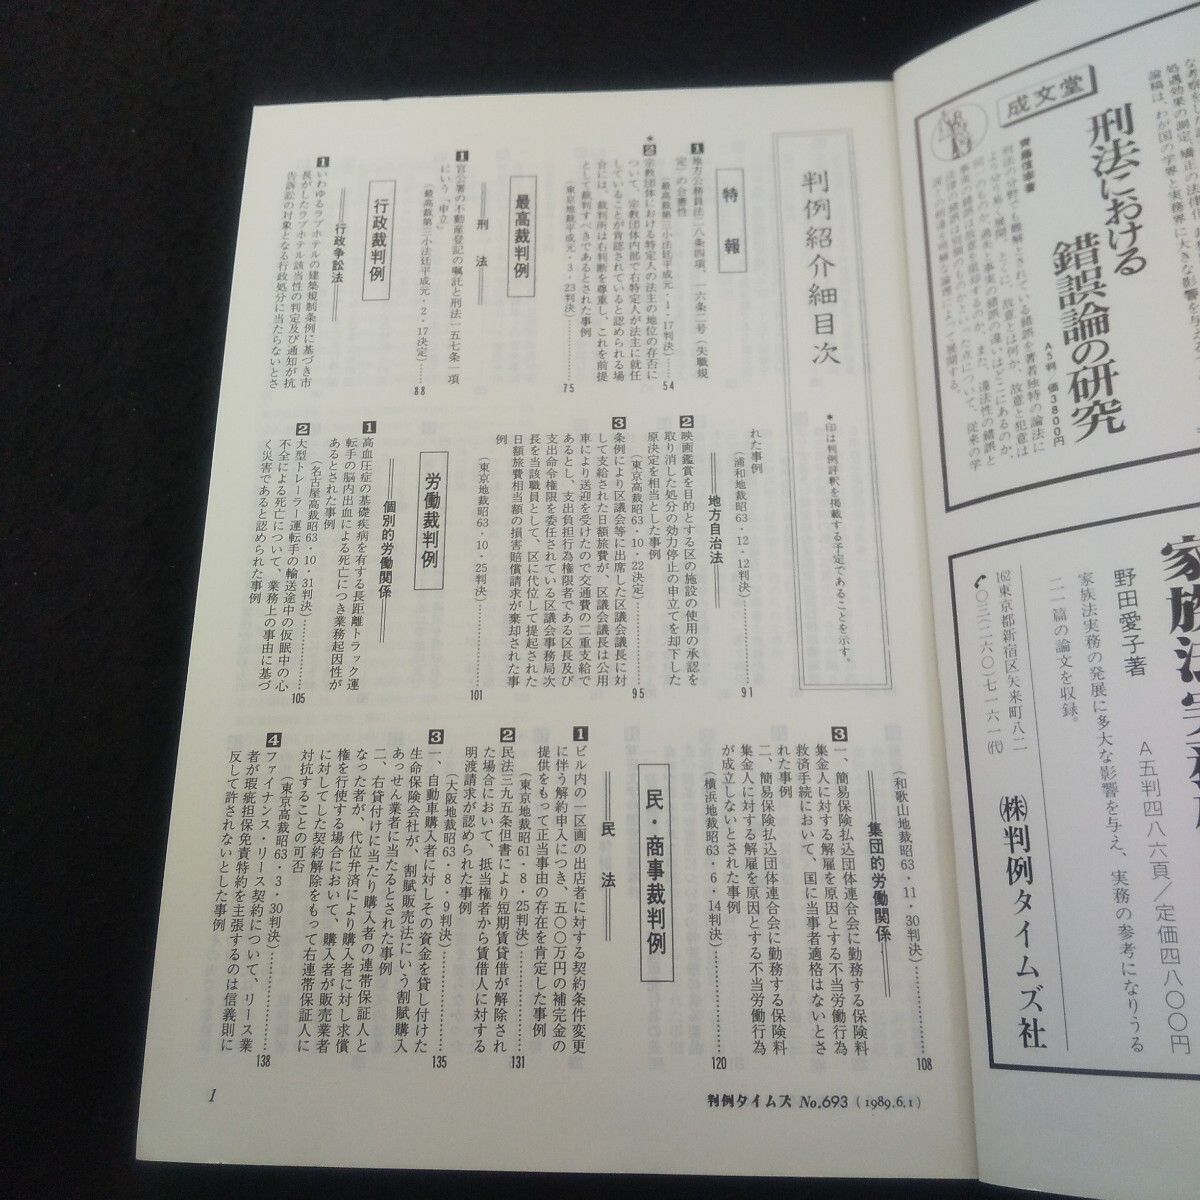 判例紹介細目次
*印は判例評釈を掲載する予定であることを示す。
特報
1 地方公務員法二八条四項、一六条二号(失職規
定)の合憲性
(最高裁第三小法廷平成元・1・17判決)……54
*2 宗教団体における特定人の法主の地位の存否に
ついて、宗教団体内部で右特定人が法主に就任
していることが肯認されていると認められる場
合には、裁判所は右判断を尊重し、これを前提
として裁判すべきであるとされた事例
(東京地裁平成元・3・23判決)……75
最高裁判例
刑法
1 官公署の不動産登記の嘱託と刑法一五七条一項
にいう「申立」
(最高裁第三小法廷平成元・2・17決定)……88
行政裁判例
行政争訟法
1 いわゆるラブホテルの建築規制条例に基づき市
長がしたラブホテル該当性の判定及び通知が抗
告訴訟の対象となる行政処分に当たらないとさ
れた事例
(浦和地裁昭63・12・12判決)……91
地方自治法
2 映画鑑賞を目的とする区の施設の使用の承認を
取り消した処分の効力停止の申立てを却下した
原決定を相当とした事例
(東京高裁昭63・10・22決定)……95
3 条例により区議会等に出席した区議会議長に対
して支給された日額旅費が、区議会議長は公用
車により送迎を受けたので交通費の二重支給で
あるとし、支出負担行為権限者である区長及び
支出命令権限を委任されている区議会事務局次
長を当該職員として、区に代位して提起された
日額旅費相当額の損害賠償請求が棄却された事
例
(東京地裁昭63・10・25判決)……101
労働裁判例
個別的労働関係
1 高血圧症の基礎疾病を有する長距離トラック運
転手の脳内出血による死亡につき業務起因性が
あるとされた事例
(名古屋高裁昭63・10・31判決)……105
2 大型トレーラー運転手の輸送途中の仮眠中の心
不全による死亡について、業務上の事由に基づ
く災害であると認められた事例
(和歌山地裁昭63・11・30判決)……108
集団的労働関係
3 一、簡易保険払込団体連合会に勤務する保険料
集金人に対する解雇を原因とする不当労働行為
救済手続において、国に当事者適格はないとさ
れた事例
二、簡易保険払込団体連合会に勤務する保険料
集金人に対する解雇を原因とする不当労働行為
が成立しないとされた事例
(横浜地裁昭63・6・14判決)……120
民・商事裁判例
民法
1 ビル内の一区画の出店者に対する契約条件変更
に伴う解約申入につき、五〇〇万円の補完金の
提供をもって正当事由の存在を肯定した事例
(東京地裁昭61・8・25判決)……131
2 民法三九五条但書により短期賃貸借が解除され
た場合において、抵当権者から賃借人に対する
明渡請求が認められた事例
(大阪地裁昭63・8・9判決)……135
3 一、自動車購入者に対しその資金を貸し付けた
生命保険会社が、割賦販売法にいう割賦購入
あっせん業者に当たるとされた事例
二、右貸付けに当たり購入者の連帯保証人と
なった者が、代位弁済により購入者に対し求償
権を行使する場合において、購入者が販売業者
に対してした契約解除をもって右連帯保証人に
対抗することの可否
(東京高裁昭63・3・30判決)……138
4 ファイナンス・リース契約について、リース業
者が瑕疵担保免責特約を主張するのは信義則に
反して許されないとした事例
1
判例タイムズ No.693 (1989.6.1)
論稿は、わが国の学界と実務界に大きな影響を
成文堂
刑法における
錯誤論の研究
齊藤信宰著
A5判 価3800円
野田愛子著
A五判四八六頁/定価四八〇〇円
家族法実務の発展に多大な影響を与え、実務の参考になりうる
二一篇の論文を収録。
162東京都新宿区矢来町八二
㈱判例タイムズ社